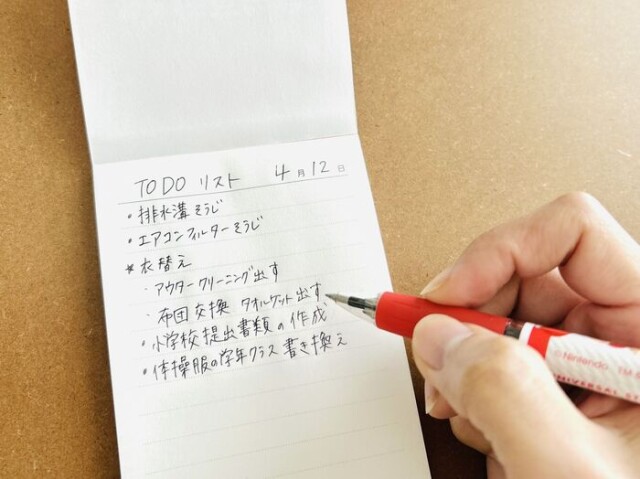 TODO リスト 4月12日
・排水溝そうじ
・エアコンフィルターそうじ
*衣替え
・アウタークリーニング出す
・布団交換 タオルケット出す
・小学校提出書類の作成
・体操服の学年クラス書き換え
©Nintendo TM &
UNIVERSAL ST